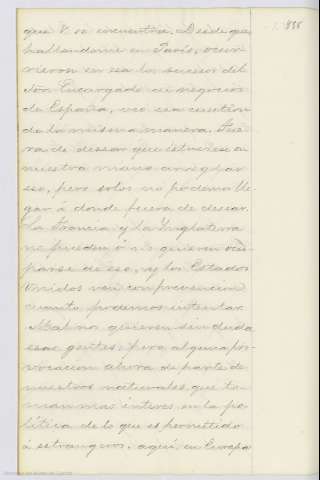 que V. se encuentra. Desde que
hallandome en Paris, ocur-
rieron en esa los sucesos del
Señor Encargado de negocios
de España, veo esa cuestion
de la misma manera. Fue-
ra de desear que estuviese en
nuestra mano arreglar
eso, pero solos no podemos lle-
gar á donde fuera de desear.
La Francia y la Inglaterra
no pueden ó no quieren ocu-
parse de eso, y los Estados
Unidos ven con prevencion
cuanto podemos intentar.
Mal nos quieren sin duda
esas gentes; pero alguna pro-
vocacion ahora de parte de
nuestros nacionales que to-
man mas interes en la po-
litica de lo que es permitido
á estrangeros, aqui, en Europa